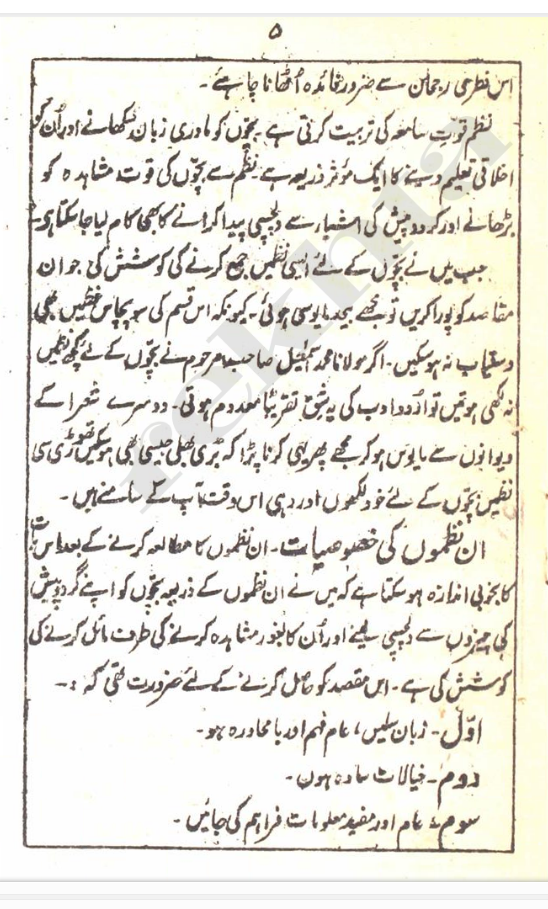 ۵
اس فطری رجحان سے ضرور فائدہ اُٹھانا چاہئے۔
نظم قوتِ سامعہ کی تربیت کرتی ہے بچّوں کو مادری زبان سکھانے اور اُن کو
اخلاقی تعلیم دینے کا ایک مؤثر ذریعہ ہے۔ نظم سے بچّوں کی قوت مشاہدہ کو
بڑھانے اور گردوپیش کی اشیار سے دلچسپی پیدا کرانے کا بھی کام لیا جا سکتا ہی۔
جب میں نے بچّوں کے لئے ایسی نظمیں جمع کرنے کی کوشش کی جو ان
مقاصد کو پورا کریں تو مجھے بیحد مایوسی ہوئی۔ کیونکہ اس قسم کی سو پچاس نظمیں بھی
دستیاب نہ ہو سکیں۔ اگر مولانا محمد اسمٰعیل صاحب مرحوم نے بچّوں کے لئے کچھ نظمیں
نہ لکھی ہوتیں تو اُردو ادب کی یہ شق تقریبًا معدوم ہوتی۔ دوسرے شعرا کے
دیوانوں سے مایوس ہو کر مجھے پھر یہی کرنا پڑا کہ بُری بھلی جیسی بھی ہو سکیں تھوڑی سی
نظمیں بچّوں کے لئے خود لکھوں اور وہی اس وقت آپ کے سامنے ہیں۔
ان نظموں کی خصوصیات۔ ان نظموں کا مطالعہ کرنے کے بعد اس بات
کا بخوبی اندازہ ہو سکتا ہے کہ میں نے ان نظموں کے ذریعہ بچّوں کو اپنے گردوپیش
کی چیزوں سے دلچسپی لینے اور اُن کا بغور مشاہدہ کرنے کی طرف مائل کرنے کی
کوشش کی ہے۔ اس مقصد کو حاصل کرنے کے لئے ضرورت تھی کہ :۔
اوّل۔ زبان سلیس، عام فہم اور بامحاورہ ہو۔
دوم۔ خیالات سادہ ہوں۔
سوم۔ عام اور مفید معلومات فراہم کی جائیں۔
rekhta